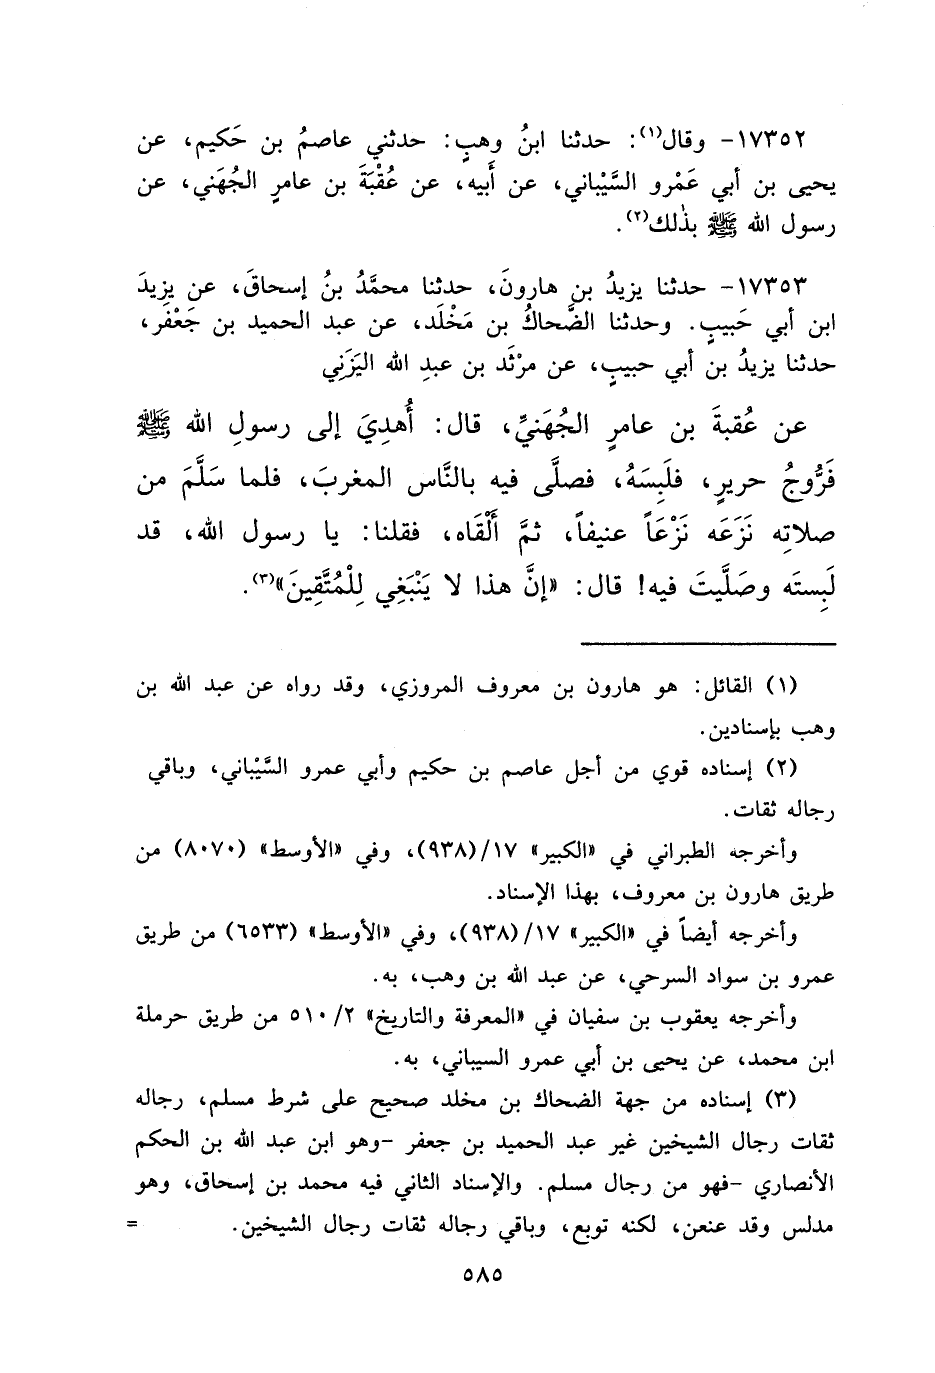 ١٧٣٥٢- وقال(١): حدثنا ابنُ وهبٍ: حدثني عاصمُ بن حَكيم، عن
يحيى بن أبي عَمْرو السَّيْباني، عن أبيه، عن عُقْبَةَ بن عامرٍ الجُهَني، عن
رسول الله ﷺ بذٰلك(٢).
١٧٣٥٣- حدثنا يزيدُ بن هارونَ، حدثنا محمَّدُ بنُ إسحاقَ، عن يزيدَ
ابن أبي حَبيبٍ. وحدثنا الضَّحاكُ بن مَخْلَد، عن عبد الحميد بن جَعْفَر،
حدثنا يزيدُ بن أبي حبيبٍ، عن مرْثَد بن عبدِ الله اليَزَنِي
عن عُقبةَ بن عامرٍ الجُهَنيِّ، قال: أُهدِيَ إلى رسولِ الله ﷺ
فَرُّوجُ حريرٍ، فلَبِسَهُ، فصلَّى فيه بالنَّاس المغربَ، فلما سَلَّمَ من
صلاتِه نَزَعَه نَزْعَاً عنيفاً، ثمَّ أَلْقَاه، فقلنا: يا رسول الله، قد
لَبِستَه وصَلَّيتَ فيه! قال: «إنَّ هذا لا يَنْبَغِي لِلْمُتَّقِينَ»(٣).
(١) القائل: هو هارون بن معروف المروزي، وقد رواه عن عبد الله بن
وهب بإسنادين.
(٢) إسناده قوي من أجل عاصم بن حكيم وأبي عمرو السَّيْباني، وباقي
رجاله ثقات.
وأخرجه الطبراني في «الكبير» ١٧/(٩٣٨)، وفي «الأوسط» (٨٠٧٠) من
طريق هارون بن معروف، بهذا الإسناد.
وأخرجه أيضاً في «الكبير» ١٧/(٩٣٨)، وفي «الأوسط» (٦٥٣٣) من طريق
عمرو بن سواد السرحي، عن عبد الله بن وهب، به.
وأخرجه يعقوب بن سفيان في «المعرفة والتاريخ» ٥١٠/٢ من طريق حرملة
ابن محمد، عن يحيى بن أبي عمرو السيباني، به.
(٣) إسناده من جهة الضحاك بن مخلد صحيح على شرط مسلم، رجاله
ثقات رجال الشيخين غير عبد الحميد بن جعفر -وهو ابن عبد الله بن الحكم
الأنصاري -فهو من رجال مسلم. والإسناد الثاني فيه محمد بن إسحاق، وهو
مدلس وقد عنعن، لكنه توبع، وباقي رجاله ثقات رجال الشيخين. =
٥٨٥